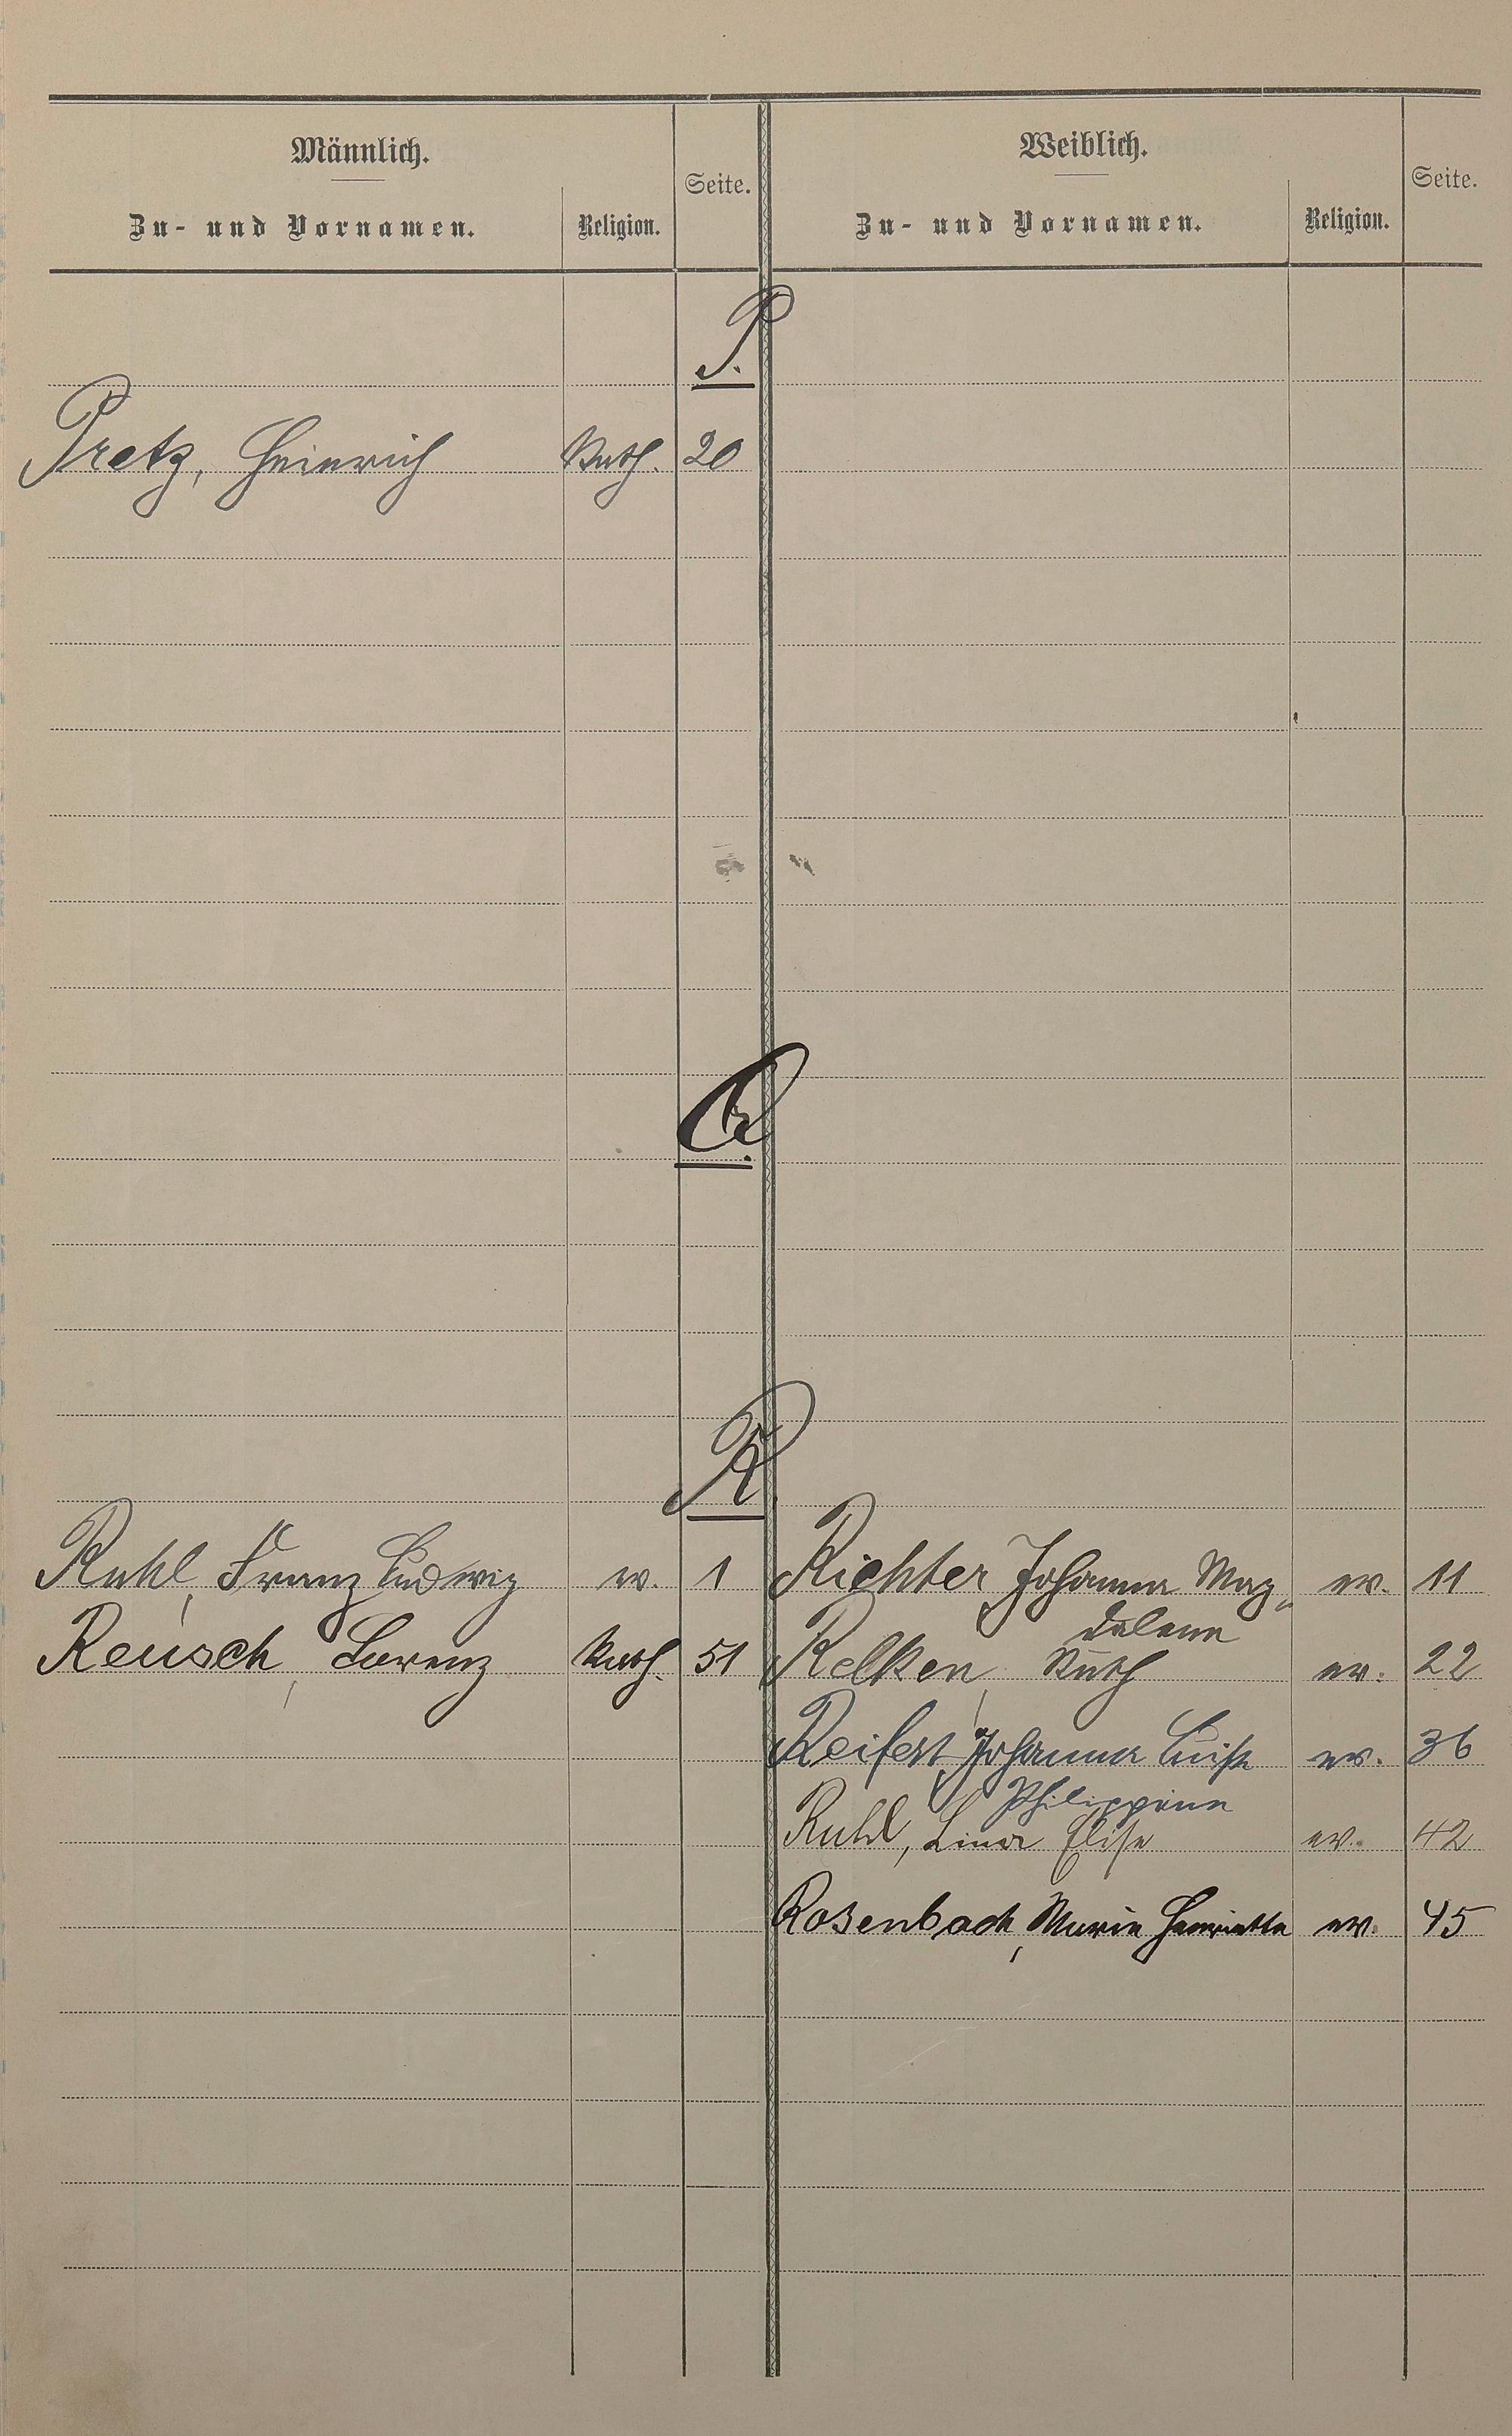 Männlich.
Zu- und Vornamen. Religion. Seite.
Weiblich.
Zu- und Vornamen. Religion. Seite.
P.
Pretz, Heinrich Kath. 20
Q.
R.
Ruhl, Franz Ludwig ev. 1
Richter, Johanna Mag„ ev. 11
dalena
Reusch, Lorenz Kath. 51
Relken, Ruth ev. 22
Reifert, Johanna Luise ev. 36
Philippine
Ruhl, Lina Elise ev. 42
Rosenbach, Maria Henriette ev. 45